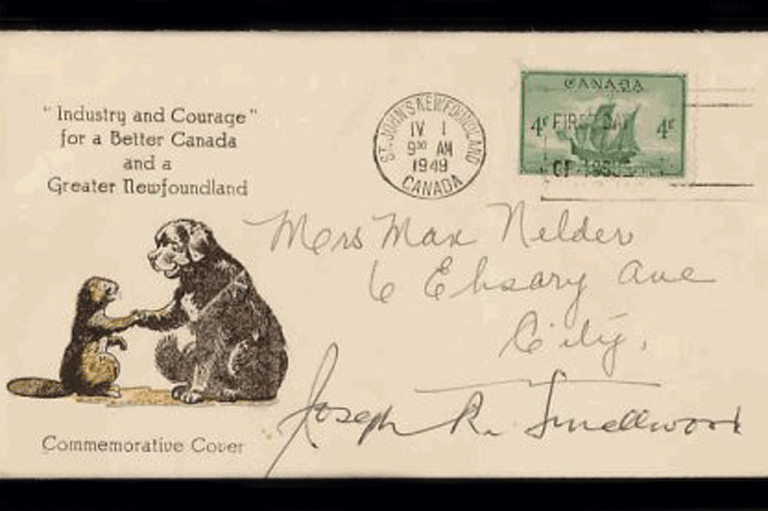 " Industry and Courage "
for a Better Canada
and a
Greater Newfoundland
ST. JOHN'S NEWFOUNDLAND
IV 1
9 00 AM
1949
CANADA
CANADA
4c FIRST DAY 4c
OF ISSUE
Mrs Max Nelder
6 Ebsary Ave
City,
Joseph R. Smallwood
Commemorative Cover